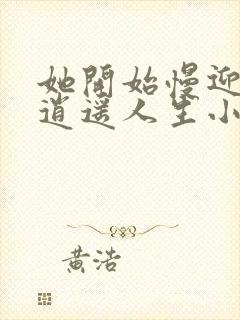 她開始慢迎
逍遥人生小
黃浩